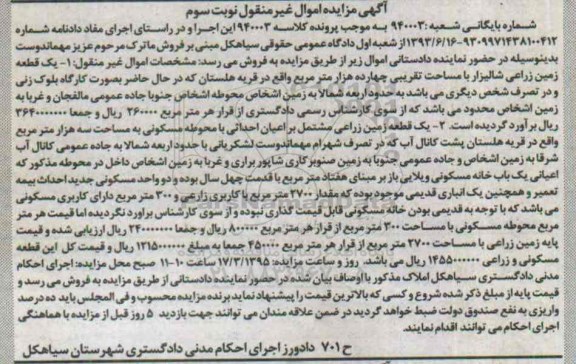 آگهی مزایده اموال غیر منقول نوبت سوم
شماره بایگانی شعبه: ۹۴۰۰۰۳ به موجب پرونده کلاسه ۹۴۰۰۰۳ این اجرا و در راستای اجرای مفاد دادنامه شماره
۹۳۰۹۹۷۱۴۳۸۱۰۰۴۱۲-۱۳۹۳/۶/۱۶ از شعبه اول دادگاه عمومی حقوقی سیاهکل مبنی بر فروش ماترک مرحوم عزیز مهماندوست
بدینوسیله در حضور نماینده دادستانی اموال زیر از طریق مزایده به فروش می رسد: مشخصات اموال غیر منقول: ۱- یک قطعه
زمین زراعی شالیزار با مساحت تقریبی چهارده هزار متر مربع واقع در قریه هلستان که در حال حاضر بصورت کارگاه بلوک زنی
و در تصرف شخص دیگری می باشد به حدود اربعه شمالا به زمین اشخاص محوطه اشخاص جنوبا جاده عمومی مالفجان و غربا به
زمین اشخاص محدود می باشد که از سوی کارشناس رسمی دادگستری از قرار هر متر مربع ۲۶۰۰۰۰ ریال و جمعا ۳۶۴۰۰۰۰۰۰۰
ریال برآورد گردیده است. ۲- یک قطعه زمین زراعی مشتمل بر اعیان احداثی با محوطه مسکونی به مساحت سه هزار متر مربع
واقع در قریه هلستان پشت کانال آب که در تصرف شهرام مهماندوست لشکریانی با حدود اربعه شمالا به جاده عمومی کانال آب
شرقا به زمین اشخاص و جاده عمومی جنوبا به زمین صنوبرکاری شاپور براری و غربا به زمین اشخاص داخل در محوطه مذکور که
اعیانی یک باب خانه مسکونی ویلایی باز بر مبنای هفتاد متر مربع با قدمت چهل سال بوده و دو واحد مسکونی جدید احداث نیمه
تعمیر و همچنین یک انباری قدیمی موجود بوده که مقدار ۲۷۰۰ متر مربع با کاربری زراعی و ۳۰۰ متر مربع دارای کاربری مسکونی
می باشد که با توجه به قدیمی بودن خانه مسکونی قابل قیمت گذاری نبوده و از سوی کارشناس برآورد نگردیده اما قیمت هر متر
مربع محوطه مسکونی با مساحت ۳۰۰ متر مربع از قرار هر متر مربع ۸۰۰۰۰۰ ریال و جمعا ۲۴۰۰۰۰۰۰۰ ریال ارزیابی شده و قیمت
پایه زمین زراعی با مساحت ۲۷۰۰ متر مربع از قرار هر متر مربع ۴۵۰۰۰۰ جمعا به مبلغ ۱۲۱۵۰۰۰۰۰۰ ریال و قیمت کل این قطعه
مسکونی و زراعی ۱۴۵۵۰۰۰۰۰۰ ریال می باشد. روز و ساعت مزایده: ۱۷/۳/۱۳۹۵ ساعت ۱۰-۱۱ صبح محل مزایده: اجرای احکام
مدنی دادگستری سیاهکل املاک مذکور با اوصاف بیان شده در حضور نماینده دادستانی از طریق مزایده به فروش می رسد و
قیمت پایه از مبلغ ذکر شده شروع و کسی که بالاترین قیمت را پیشنهاد نماید برنده مزایده محسوب و فی المجلس باید ده درصد
واریزی به نفع صندوق دولت ضبط خواهد گردید در ضمن علاقه مندان می توانند جهت بازدید ۵ روز قبل از مزایده با هماهنگی
اجرای احکام می توانند اقدام نمایند.
ح ۷۰۱ دادورز اجرای احکام مدنی دادگستری شهرستان سیاهکل